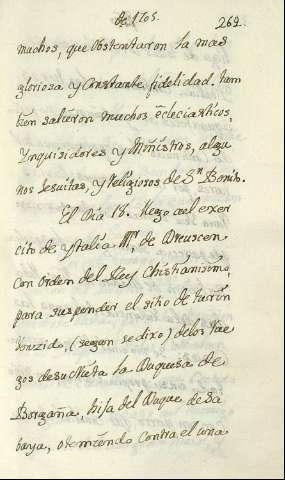 de 1705. 262.
muchos, que obstentaron la mas
gloriosa y Constante fidelidad. tam
bien salieron muchos ècleciasticos,
Ynquisidores y Mönistros, algu
nos Jesuitas, y Religiosos de Sⁿ. Benito.
El Dia 18. llego ael exer
cito de ytalia Mʳ. de Dreuscen
con orden del Rey Christianisimo,
para suspender el sitio de turin
Vencido, (segun se dixo) delos rue
gos de su Nieta la Duquesa de
Borgaña, hija del Duque de Sa
baya, o temiendo contra el una